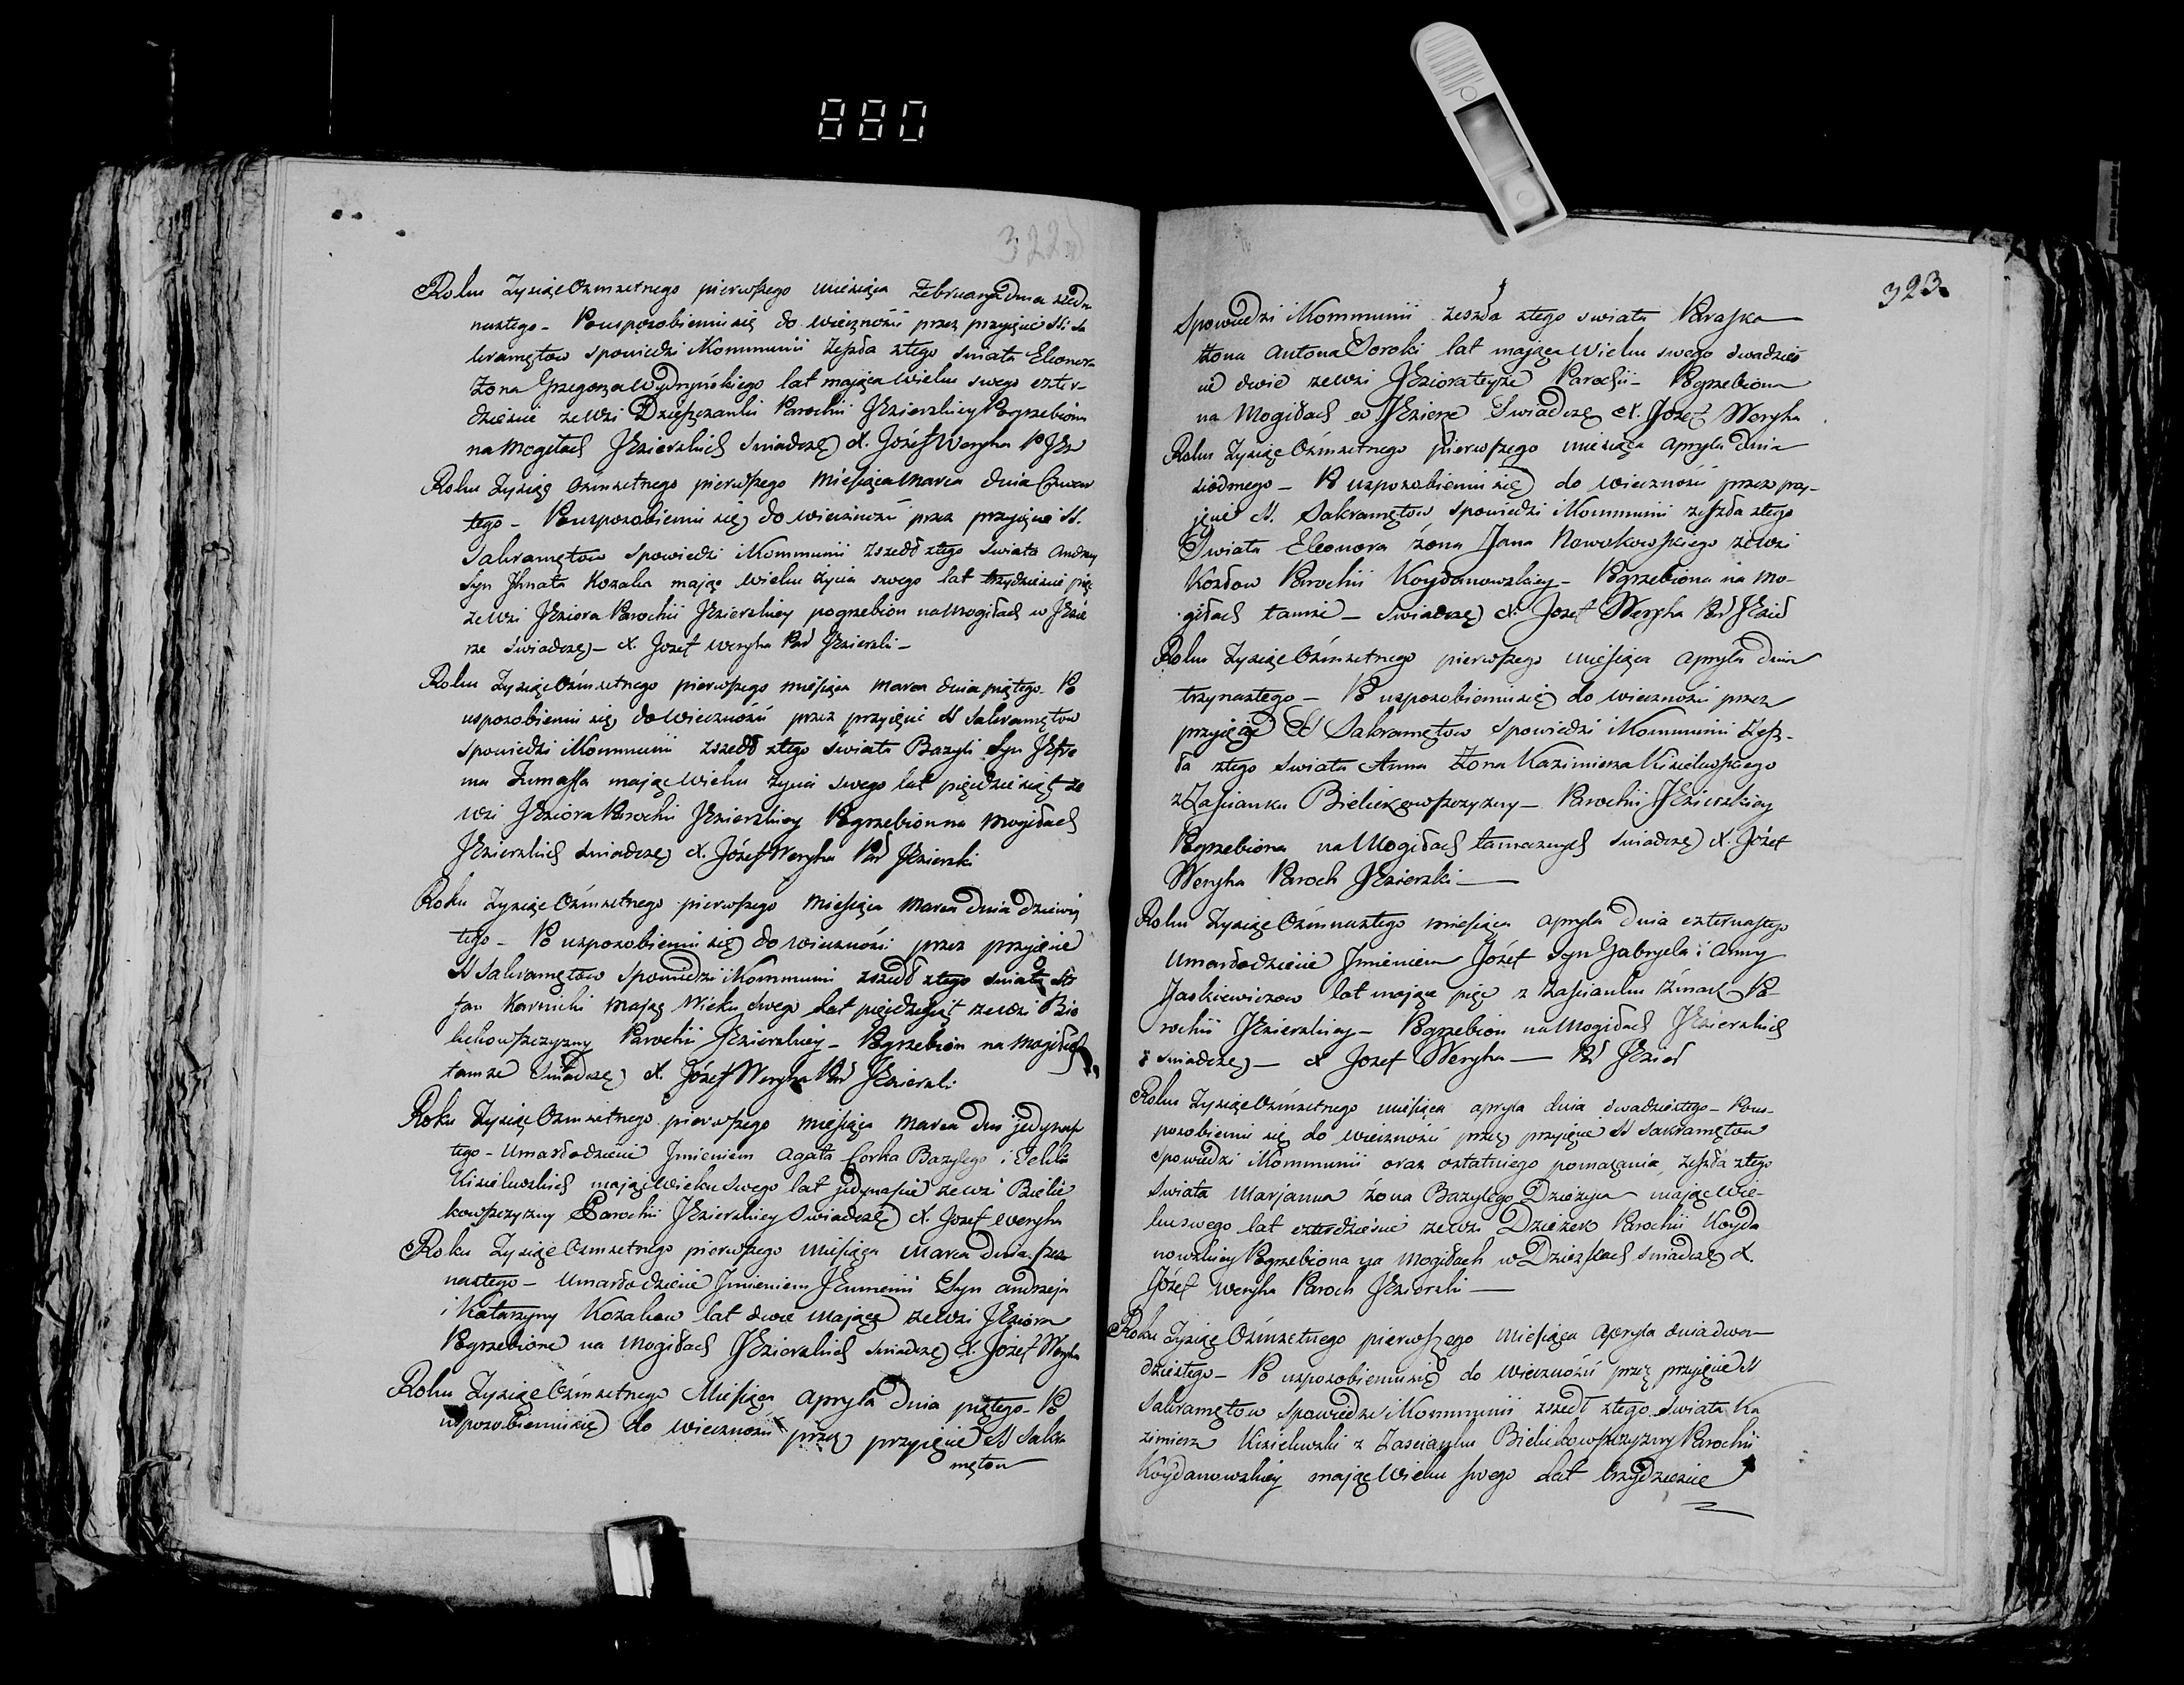 880
322
Roku Tysiąc Ośmsetnego pierwszego miesiąca Februarya dnia siedm
nastego - Po usposobieniu się do wieczności przez przyięcie SS. Sa
kramętow spowiedzi i Kommunii zeszła z tego swiata Eleonora
Żona Grzegorza lat mająca wieku swego czter-
dzieście ze wsi Parochii Jezierskiey Pogrzebiona
na Mogiłach Jezierskich swiadczę X. Józef Weryha P Jez
Roku Tysiąc Osmsetnego pierwszego Miesiąca Marca dnia Czwar
tego - Po usposobieniu się do wieczności przez przyięcie SS.
Sakramętow Spowiedzi i Kommunii zszedł z tego swiata Andrzey
Syn Ihnata Kozaka mając wieku życia swego lat trzydzieście pięć
ze wsi Jeziora Parochii Jezierskiey pogrzebion na Mogiłach w Jezie
rze swiadczę - X. Jozef Weryha Par Jezierski -
Roku Tysiąc Ośmsetnego pierwszego miesiąca Marca dnia piątego - Po
usposobieniu się do wieczności przez przyięcie SS Sakramętow
spowiedzi i Kommunii zszedł z tego swiata Bazyli Syn
ma mając wieku życia swego lat pięcdziesiąt ze
wsi Jeziora Parochii Jezierskiey Pogrzebion na Mogiłach
Jezierskich swiadczę X. Józef Weryha Par Jezierski
Roku Tysiąc Ośmsetnego pierwszego Miesiąca Marca dnia dziewią
tego - Po usposobieniu się do wieczności przez przyięcie
SS Sakramętow Spowiedzi i Kommunii zszedł z tego swiata Ste
fan mając wieku swego lat pięcdziesiąt ze wsi Bie
likowszczyzny Parochii Jezierskiey - Pogrzebion na Mogiłach
tamże swiadczę X. Józef Weryha Par Jezierski
Roku Tysiąc Osmsetnego pierwszego miesiąca Marca dnia jedynas
tego - Umarło dziecie Imieniem Agata Corka Bazylego i Tekli
Kisielewskich mając wieku swego lat jedynaście ze wsi Bieli
kowszczyzny Parochii Jezierskiey Swiadczę X. Jozef Weryha
Roku Tysiąc Osmsetnego pierwszego miesiąca Marca dnia
nastego - Umarło dziecie Imieniem Syn Andrzeja
i Katarzyny Kozakow lat dwie mające ze wsi Jeziora
Pogrzebione na Mogiłach Jezierskich swiadczę X. Jozef Weryha
Roku Tysiąc Ośmsetnego Miesiąca Apryla dnia piątego - Po
usposobieniu się do wieczności przez przyięcie SS Sakra
mętow
323.
Spowiedzi i Kommunii zeszła z tego swiata Paraska
Żona Antona Soroki lat mająca wieku swego dwadzieś
cie dwie ze wsi Jeziora teyże Parochii - Pogrzebiona
na Mogiłach w Jezierze Swiadczę X. Jozef Weryha
Roku Tysiąc Ośmsetnego pierwszego miesiąca Apryla dnia
siodmego - Po usposobieniu się do wieczności przez przy-
ięcie SS. Sakramętow spowiedzi i Kommunii zeszła z tego
Swiata Eleonora żona Jana Nowokowskiego ze wsi
Kozłow Parochii Koydanowskiey - Pogrzebiona na Mo-
giłach tamże - swiadczę X. Jozef Weryha Par Jezier
Roku Tysiąc Ośmsetnego pierwszego miesiąca Apryla dnia
trzynastego - Po usposobieniu się do wieczności przez
przyięcie SS Sakramętow Spowiedzi i Kommunii zesz-
ła z tego swiata Anna Żona Kazimierza Kisielewskiego
z Zascianku Parochii Jezierskiey
Pogrzebiona na Mogiłach tamecznych swiadczę X. Józef
Weryha Paroch Jezierski
Roku Tysiąc Ośmnastego miesiąca Apryla dnia czternastego
Umarło dziecie Imieniem Józef syn Gabryela i Anny
Jaskiewiczow lat mające pięć z Zascianku Pa-
rochii Jezierskiey - Pogrzebion na Mogiłach Jezierskich
swiadczę - X Jozef Weryha - Par Jezier
Roku Tysiąc Ośmsetnego miesiąca Apryla dnia dwadziestego - Po us-
posobieniu się do wieczności przez przyięcie SS Sakramętow
Spowiedzi i Kommunii oraz ostatniego pomazania zeszła z tego
swiata Marjanna żona Bazylego mając wie-
ku swego lat czterdzieście ze wsi Parochii Koyda
nowskiey Pogrzebiona na Mogiłach w swiadczę X.
Józef Weryha Paroch Jezierski
Roku Tysiąc Ośmsetnego pierwszego Miesiąca Apryla dnia dwa
dziestego - Po usposobieniu się do wieczności przez przyięcie SS
Sakramętow spowiedzi i Kommunii zszedł z tego swiata Ka
zimierz Kisielewski z Zascianku Bielikowszczyzny Parochii
Koydanowskiey mając wieku swego lat trzydzieście